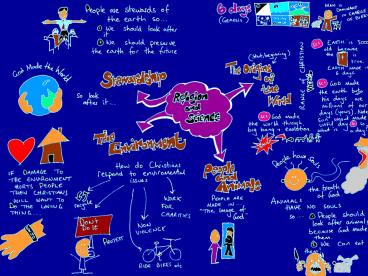 People are Stewards of
the earth so...
① We should look after
it
② We should preserve
the earth for the future
God Made the World
so look
after it...
Stewardship
6 days
(Genesis)
The Origins
of the
World
Religion
and
Science
The Environment
IF DAMAGE TO
THE ENVIRONMENT
HURTS PEOPLE
THEN CHRISTIANS
WILL WANT TO
DO THE LOVING
THING...
How do Christians
respond to environmental
issues
DON'T
DO IT
PROTEST
NON
VIOLENCE
WORK
FOR
CHARITIES
RIDE BIKES etc
People
and
Animals
PEOPLE ARE
MADE IN
"The image of
God"
RANGE OF CHRISTIAN
God made
the earth
6 days
God made
the world through
big bang & evolution
People have Souls
the breath
of God
ANIMALS
HAVE NO SOULS
so... ① People should
look after animals
because God made
them.
② We can eat